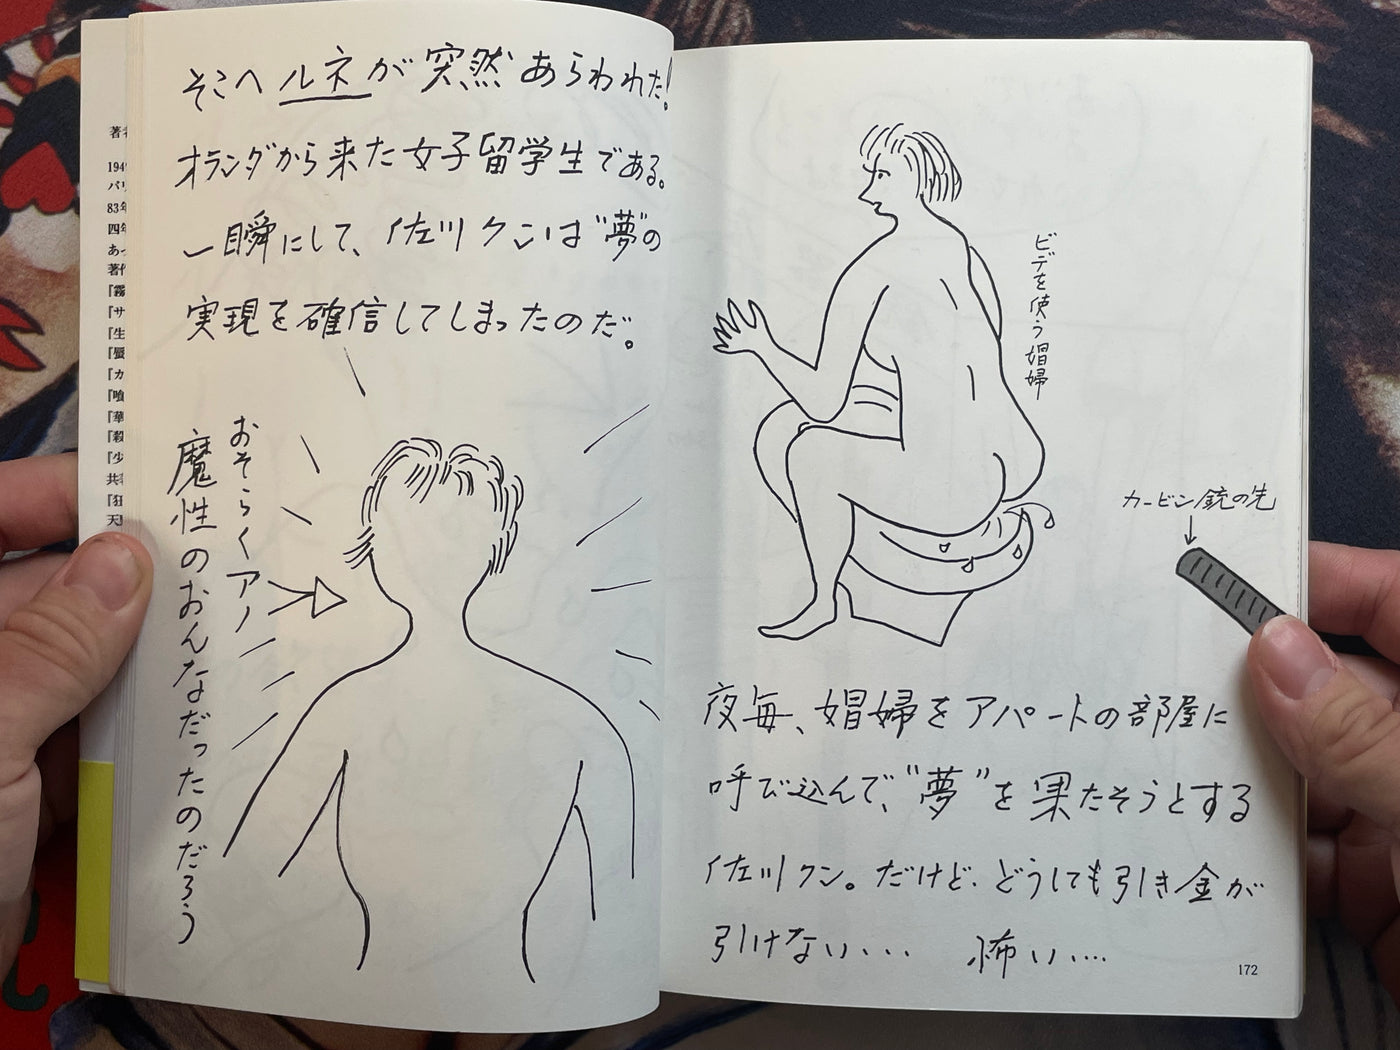 ビデを使う娼婦
カービン銃の先
夜毎、娼婦をアパートの部屋に
呼び込んで、“夢”を果たそうとする
佐川クン。だけど、どうしても引き金が
引けない・・・　怖い・・・・
172
そこへルネが突然あらわれた!
オランダから来た女子留学生である。
一瞬にして、佐川クンは“夢”の
実現を確信してしまったのだ。
おそらくアノ
魔性のおんなだったのだろう
著
194
パリ
83年
四年
あっ
著作
『霧
『サ
『生
『蜃
『カ
『喰
『華
『殺
『少
共
『狂
天